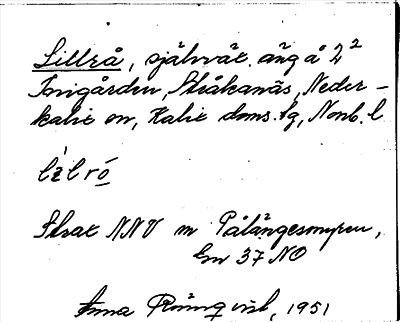 Lillrå, självvät. äng å 2²
Innigården, Stråkanäs, Neder-
kalix sn, Kalix doms. tg, Norrb. l
Strax NNV m Pålängesmyren,
Em 37 NO
Anna Rönnqvist, 1951